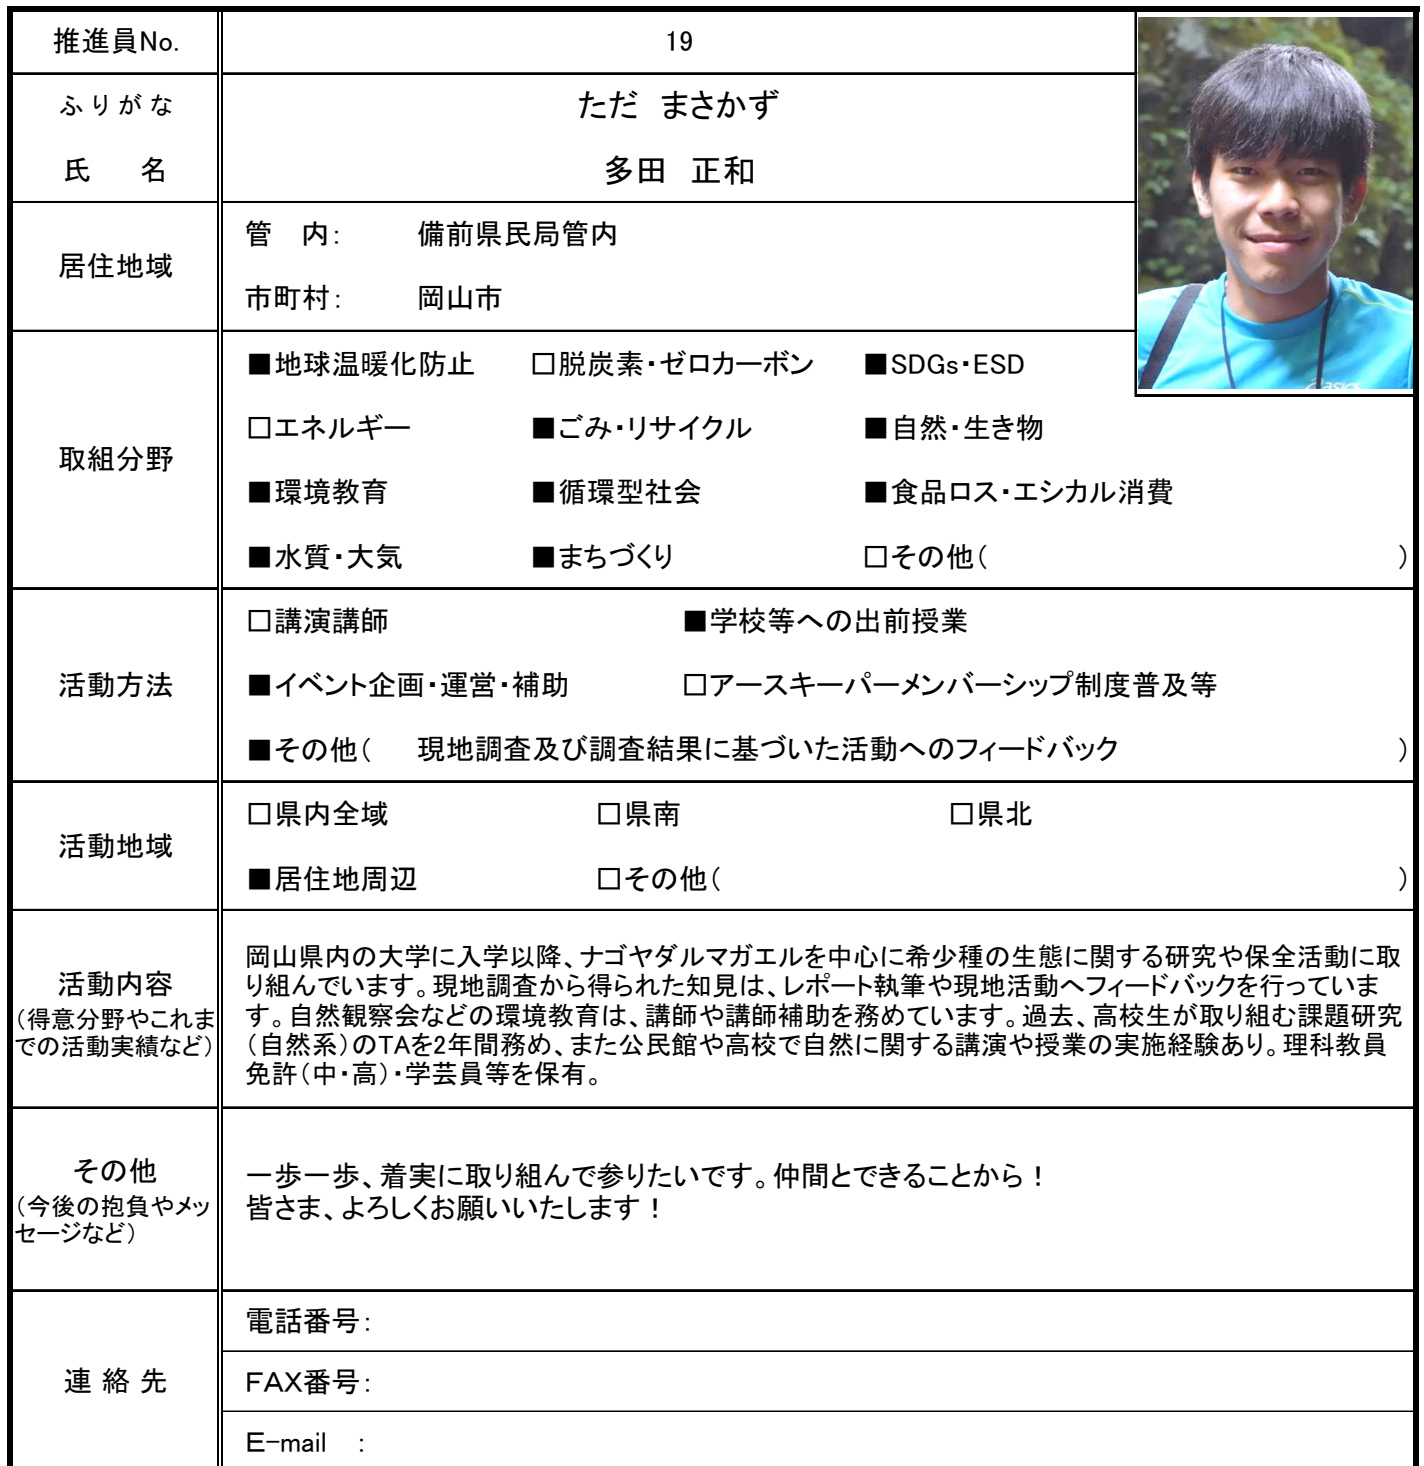 推進員No.
19
ふりがな
ただ　まさかず
氏　名
多田　正和
居住地域
管　内：　備前県民局管内
市町村：　岡山市
取組分野
■地球温暖化防止　□脱炭素・ゼロカーボン　■SDGs・ESD
□エネルギー　■ごみ・リサイクル　■自然・生き物
■環境教育　■循環型社会　■食品ロス・エシカル消費
■水質・大気　■まちづくり　□その他（　）
活動方法
□講演講師　■学校等への出前授業
■イベント企画・運営・補助　□アースキーパーメンバーシップ制度普及等
■その他（　現地調査及び調査結果に基づいた活動へのフィードバック　）
活動地域
□県内全域　□県南　□県北
■居住地周辺　□その他（　）
活動内容
（得意分野やこれま
での活動実績など）
岡山県内の大学に入学以降、ナゴヤダルマガエルを中心に希少種の生態に関する研究や保全活動に取
り組んでいます。現地調査から得られた知見は、レポート執筆や現地活動へフィードバックを行っていま
す。自然観察会などの環境教育は、講師や講師補助を務めています。過去、高校生が取り組む課題研究
（自然系）のTAを2年間務め、また公民館や高校で自然に関する講演や授業の実施経験あり。理科教員
免許（中・高）・学芸員等を保有。
その他
（今後の抱負やメッ
セージなど）
一歩一歩、着実に取り組んで参りたいです。仲間とできることから！
皆さま、よろしくお願いいたします！
連絡先
電話番号：
FAX番号：
E-mail　：
asics